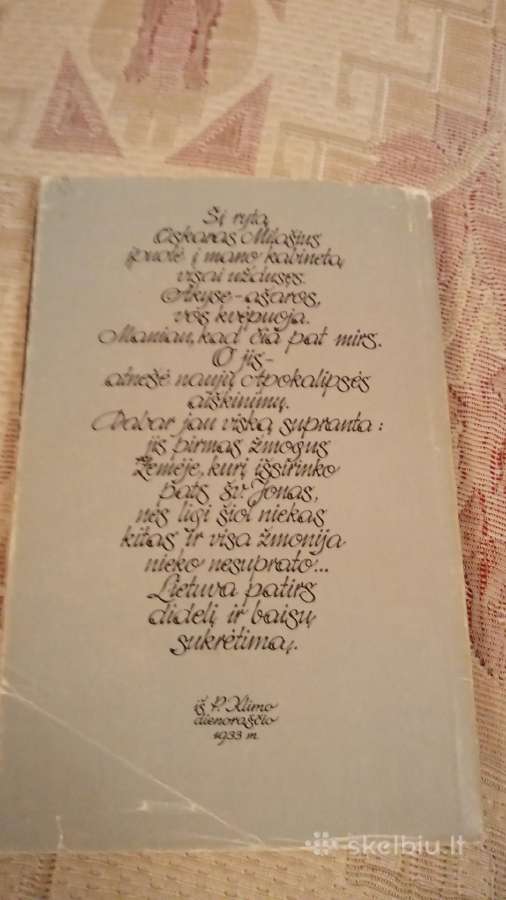 Šį rytą
Oskaras Milašius
įpuolė į mano kabinetą
visai uždusęs.
Akyse-ašaros,
vos kvėpuoja.
Maniau, kad čia pat mirs.
O jis-
atnešė naujų Apokalipsės
aiškinimų.
Dabar jau viską supranta:
jis pirmas žmogus
Žemėje, kurį išsirinko
pats šv. Jonas,
nes ligi šiol niekas
kitas ir visa žmonija
nieko nesuprato...
Lietuva patirs
didelį ir baisų
sukrėtimą.
iš P. Klimo
dienoraščio
1933 m.
skelbiu.lt